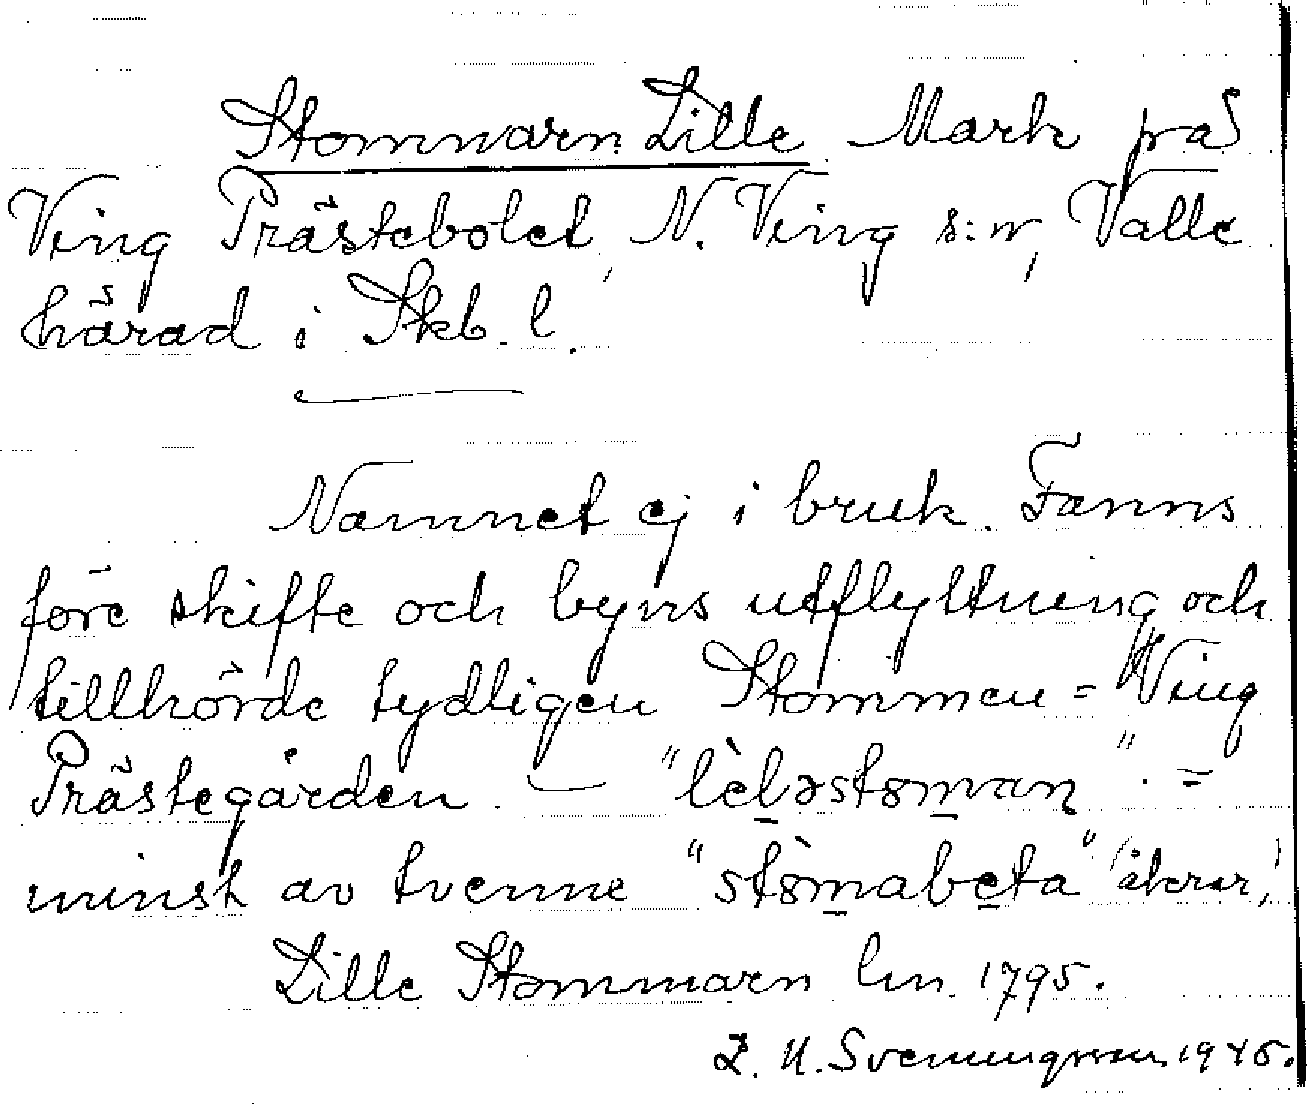 Stommarn Lille Mark på
Ving Prästebolet, N. Ving s:n, Valle
härad i Skb. l.
Namnet ej i bruk. Fanns
före skifte och byns utflyttning och
tillhörde tydligen Stommen = Ving
Prästegården. — "lèləstoman". =
minst av tvenne "stòmabeta" (åkrar)
Lille Stommarn lm. 1795.